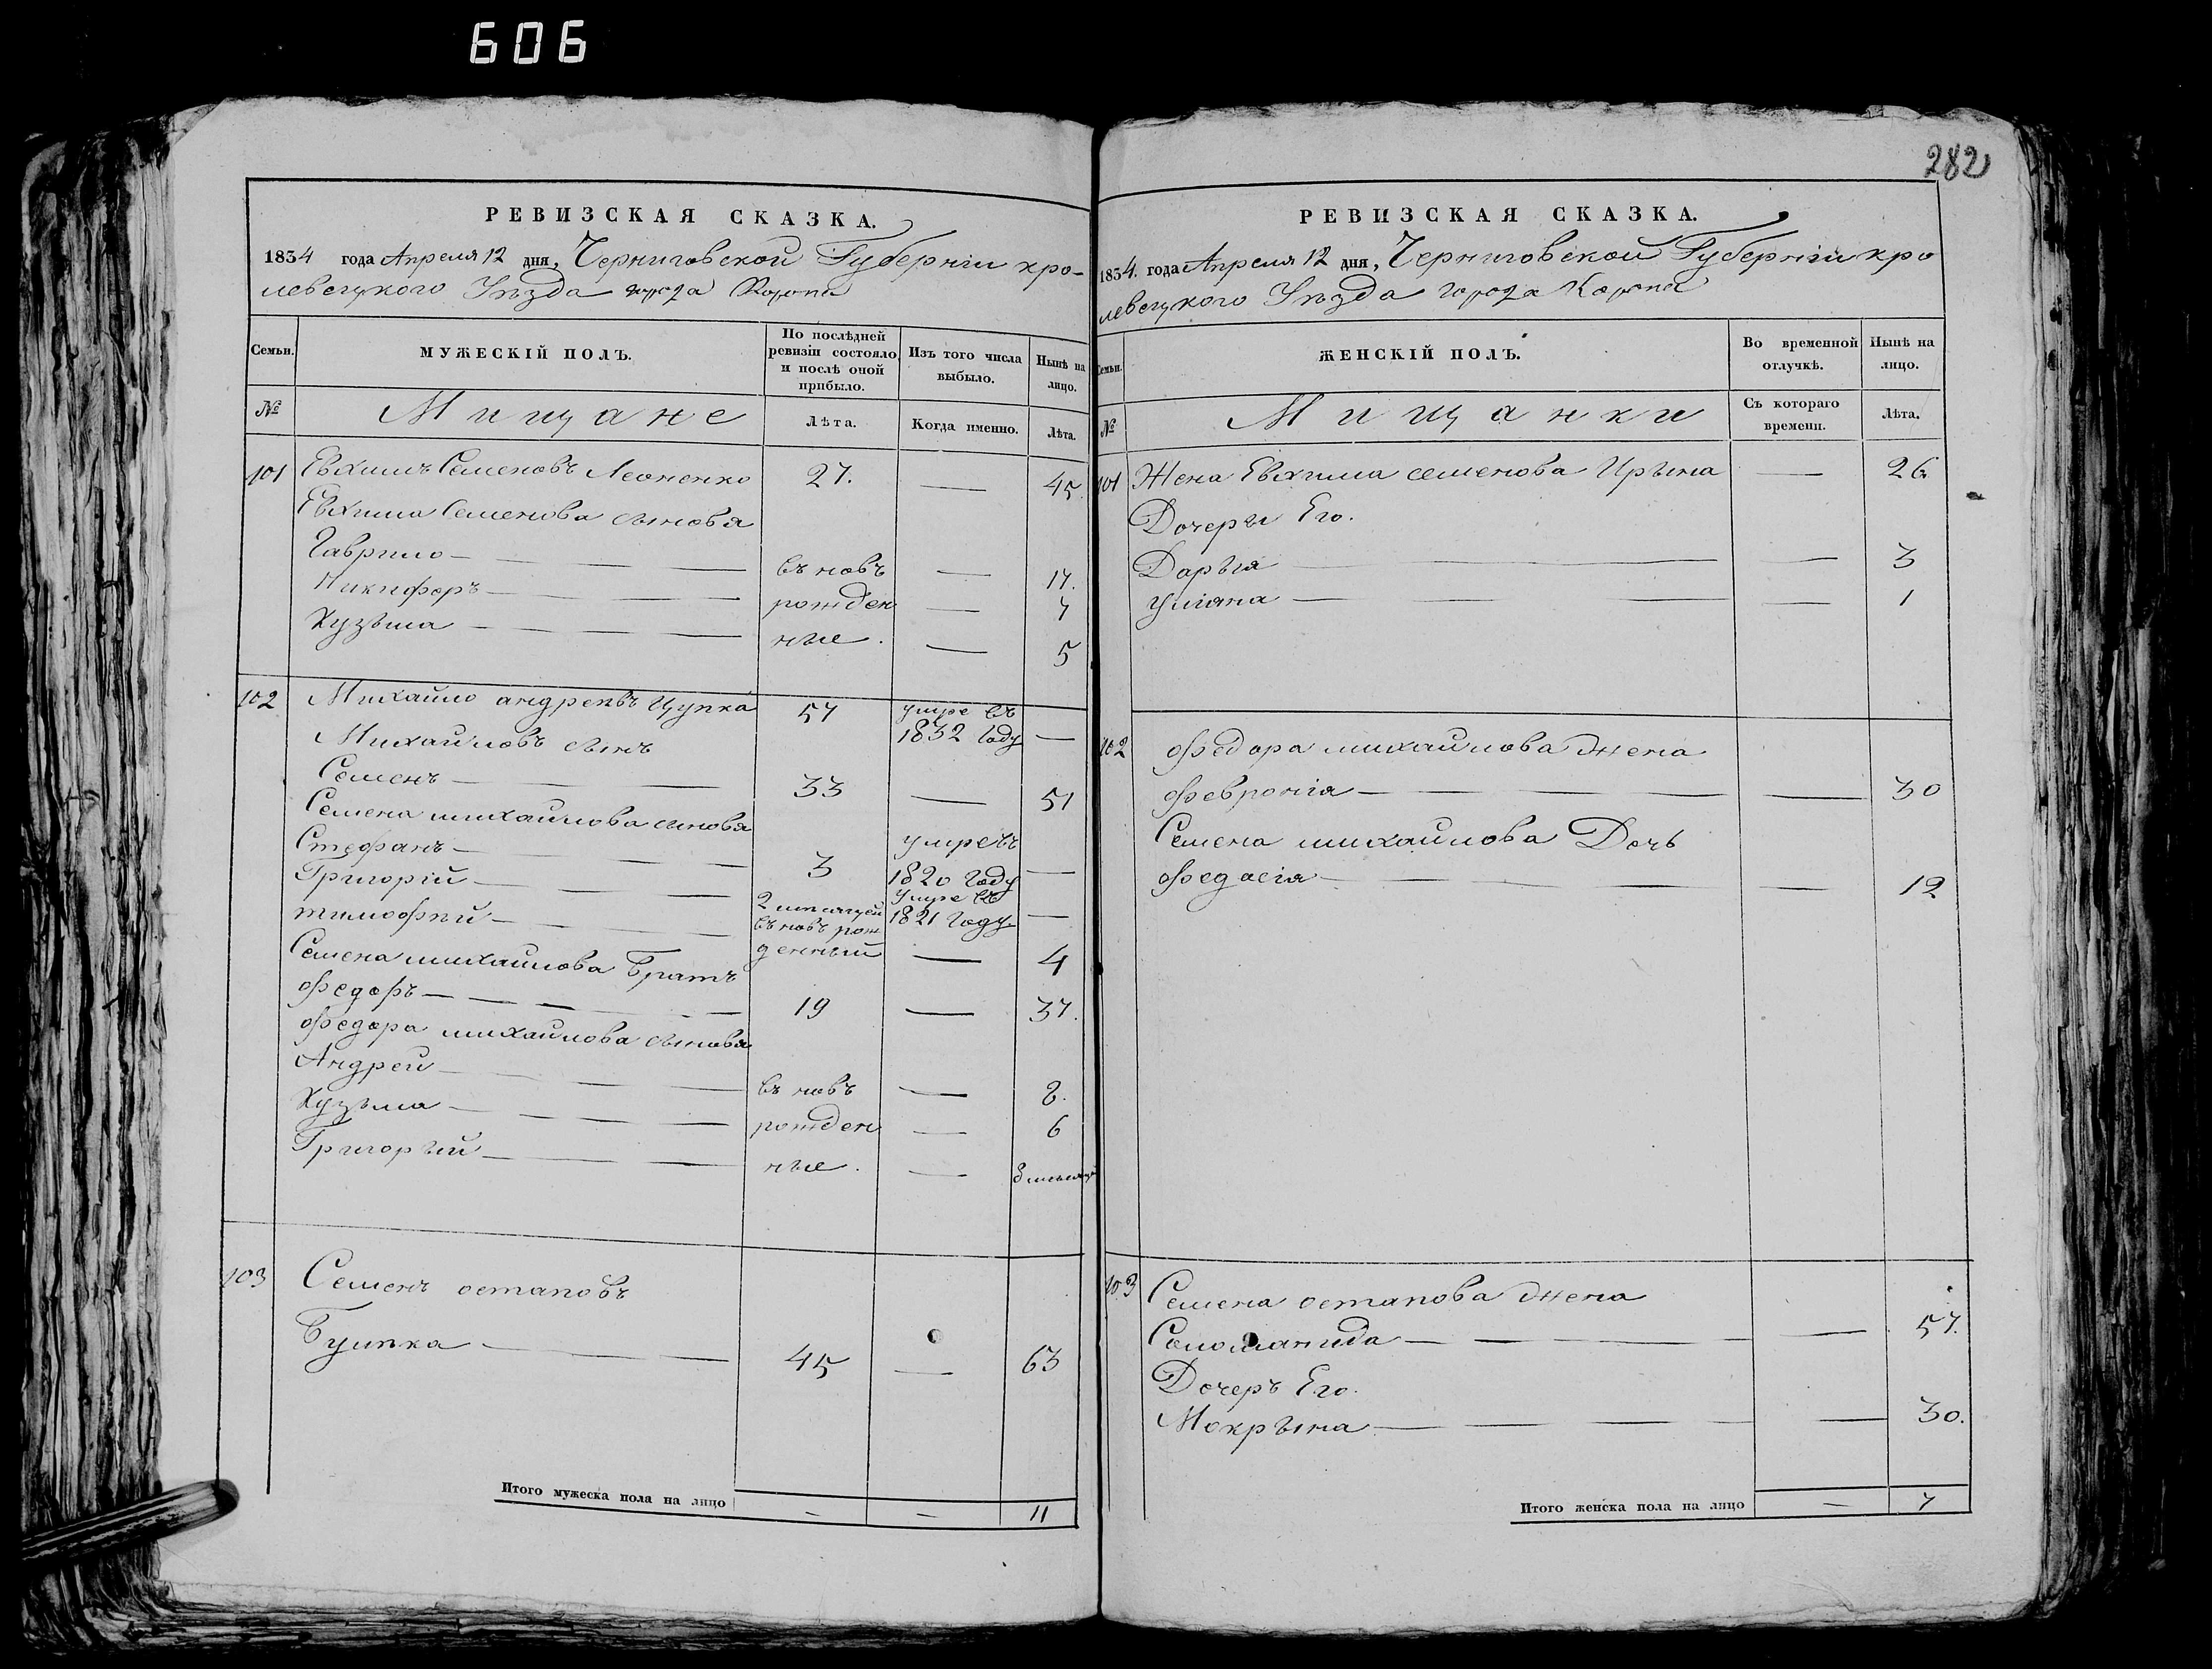 606
282
РЕВИЗСКАЯ СКАЗКА.
1834 года Апреля 12 дня, Черниговской Губерніи кро-
левецкого Уѣзда города Коропа
Семьи.
МУЖЕСКІЙ ПОЛЪ.
По послѣдней ревизіи состояло, и послѣ оной прибыло.
Изъ того числа выбыло.
Нынѣ на лицо.
№
Мищане
Лѣта.
Когда именно.
Лѣта.
101 Евхимъ Семеновъ Леоненко 27. — 45.
Евхима Семенова сыновя
Гаврило — въ новъ — 17.
Никифоръ — рожден — 7
Кузьма — ные. — 5
102 Михайло андреевъ Цупка 57 умре въ 1832 году —
Михайловъ сынъ
Семенъ — 33 — 51
Семена михайлова сыновя
Стефанъ — 3 умре въ 1820 году —
Григорій — 2 месяцей умре въ 1821 году —
тимофей — въ новъ рожденный — 4
Семена михайлова братъ
Федоръ — 19 — 37.
Федора михайлова сыновя
Андрей — въ новъ — 8.
Кузьма — рожден — 6
Григорый — ные. —
103 Семенъ остаповъ
45 — 63
Итого мужеска пола на лицо — — 11
РЕВИЗСКАЯ СКАЗКА.
1834. года Апреля 12 дня, Черниговской Губерніи кро
левецкого Уѣзда города Коропа
Семьи.
ЖЕНСКІЙ ПОЛЪ.
Во временной отлучкѣ.
Нынѣ на лицо.
№
Мищанки
Съ котораго времени.
Лѣта.
101 Жена Евхима семенова Ирына — 26
Дочеры Его.
Дарья — 3
уліяна — 1
102 Федора михайлова жена
Февронія — 30
Семена михайлова Дочь
Федосія — 12
103 Семена остапова жена
Соломанида — 57.
Дочеръ Его.
Мокрына — 30.
Итого женска пола на лицо — 7